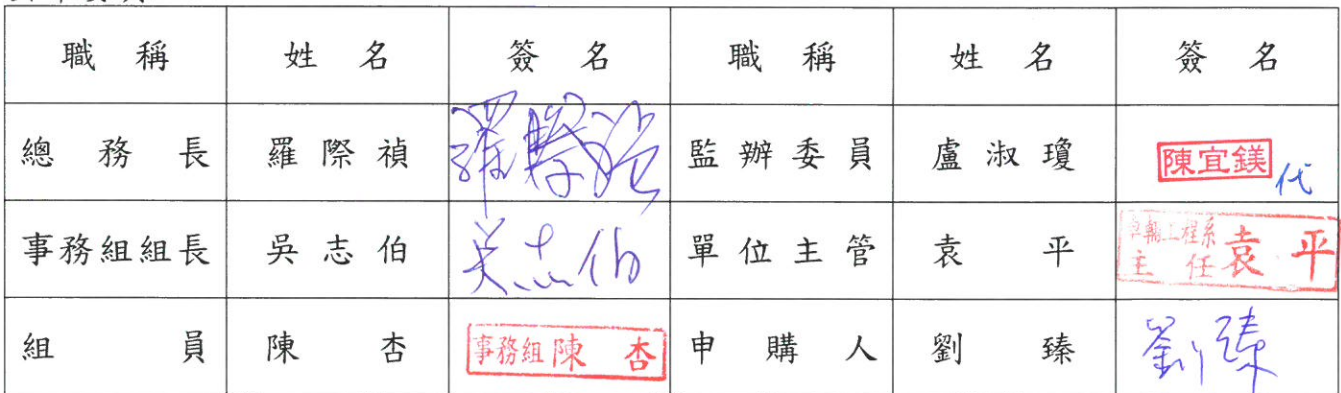 職稱 姓名 簽名 職稱 姓名 簽名
總務長 羅際禎 羅際禎 監辦委員 盧淑瓊 陳宜鎂 代
事務組組長 吳志伯 吳志伯 單位主管 袁平 車輛工程系 主任 袁平
組員 陳杏 事務組 陳杏 申購人 劉臻 劉臻